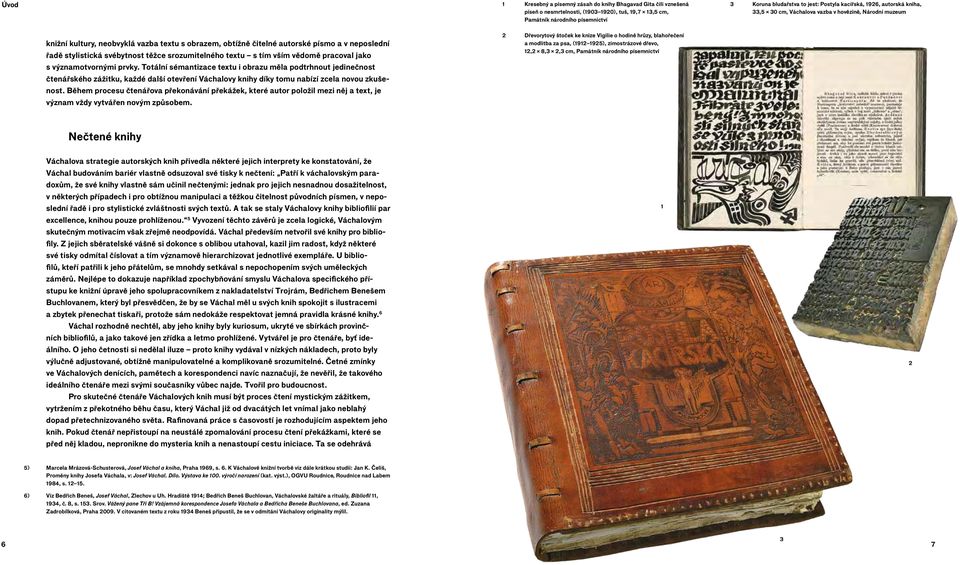 Úvod
knižní kultury, neobvyklá vazba textu s obrazem, obtížně čitelné autorské písmo a v neposlední
řadě stylistická svébytnost těžce srozumitelného textu – s tím vším vědomě pracoval jako
s významotvornými prvky. Totální sémantizace textu i obrazu měla podtrhnout jedinečnost
čtenářského zážitku, každé další otevření Váchalovy knihy díky tomu nabízí zcela novou zkuše-
nost. Během procesu čtenářova překonávání překážek, které autor položil mezi něj a text, je
význam vždy vytvářen novým způsobem.
Nečtené knihy
Váchalova strategie autorských knih přivedla některé jejich interprety ke konstatování, že
Váchal budováním bariér vlastně odsuzoval své tisky k nečtení: „Patří k váchalovským para-
doxům, že své knihy vlastně sám učinil nečtenými: jednak pro jejich nesnadnou dosažitelnost,
v některých případech i pro obtížnou manipulaci a těžkou čitelnost původních písmen, v nepo-
slední řadě i pro stylistické zvláštnosti svých textů. A tak se staly Váchalovy knihy bibliofilií par
excellence, knihou pouze prohlíženou.“⁵ Vyvození těchto závěrů je zcela logické, Váchalovým
skutečným motivacím však zřejmě neodpovídá. Váchal především netvořil své knihy pro biblio-
fily. Z jejich sběratelské vášně si dokonce s oblibou utahoval, kazil jim radost, když některé
své tisky odmítal číslovat a tím významově hierarchizovat jednotlivé exempláře. U biblio-
filů, kteří patřili k jeho přátelům, se mnohdy setkával s nepochopením svých uměleckých
záměrů. Nejlépe to dokazuje například zpochybňování smyslu Váchalova specifického pří-
stupu ke knižní úpravě jeho spolupracovníkem z nakladatelství Trojrám, Bedřichem Benešem
Buchlovanem, který byl přesvědčen, že by se Váchal měl u svých knih spokojit s ilustracemi
a zbytek přenechat tiskaři, protože sám nedokáže respektovat jemná pravidla krásné knihy.⁶
Váchal rozhodně nechtěl, aby jeho knihy byly kuriosum, ukryté ve sbírkách provinč-
ních bibliofilů, a jako takové jen zřídka a letmo prohlížené. Vytvářel je pro čtenáře, byť ide-
álního. O jeho četnosti si nedělal iluze – proto knihy vydával v nízkých nákladech, proto byly
výlučně adjustované, obtížně manipulovatelné a komplikovaně srozumitelné. Četné zmínky
ve Váchalových denících, pamětech a korespondenci navíc naznačují, že nevěřil, že takového
ideálního čtenáře mezi svými současníky vůbec najde. Tvořil pro budoucnost.
Pro skutečné čtenáře Váchalových knih musí být proces čtení mystickým zážitkem,
vytržením z překotného běhu času, který Váchal již od dvacátých let vnímal jako neblahý
dopad přetechnizovaného světa. Rafinovaná práce s časovostí je rozhodujícím aspektem jeho
knih. Pokud čtenář nepřistoupí na neustálé zpomalování procesu čtení překážkami, které se
před něj kladou, nepronikne do mysteria knih a nenastoupí cestu iniciace. Ta se odehrává
5) Marcela Mrázová-Schusterová, Josef Váchal a kniha, Praha 1969, s. 6. K Váchalově knižní tvorbě viz dále krátkou studii: Jan K. Čeliš,
Proměny knihy Josefa Váchala, v: Josef Váchal. Dílo. Výstava ke 100. výročí narození (kat. výst.), OGVU Roudnice, Roudnice nad Labem
1984, s. 12–15.
6) Viz Bedřich Beneš, Josef Váchal, Zlechov u Uh. Hradiště 1914; Bedřich Beneš Buchlovan, Váchalovské žaltáře a rituály, Bibliofil 11,
1934, č. 8, s. 153. Srov. Vážený pane Tři B! Vzájemná korespondence Josefa Váchala a Bedřicha Beneše Buchlovana, ed. Zuzana
Zadrobílková, Praha 2009. V citovaném textu z roku 1934 Beneš připustil, že se v odmítání Váchalovy originality mýlil.
6
1 Kresebný a písemný zásah do knihy Bhagavad Gita čili vznešená
píseň o nesmrtelnosti, (1903–1920), tuš, 19,7 × 13,5 cm,
Památník národního písemnictví
2 Dřevorytový štoček ke knize Vigilie o hodině hrůzy, blahořečení
a modlitba za psa, (1912–1925), zimostrázové dřevo,
12,2 × 8,3 × 2,3 cm, Památník národního písemnictví
3 Koruna bludařstva to jest: Postyla kacířská, 1926, autorská kniha,
33,5 × 30 cm, Váchalova vazba v hovězině, Národní muzeum
1
2
3
7